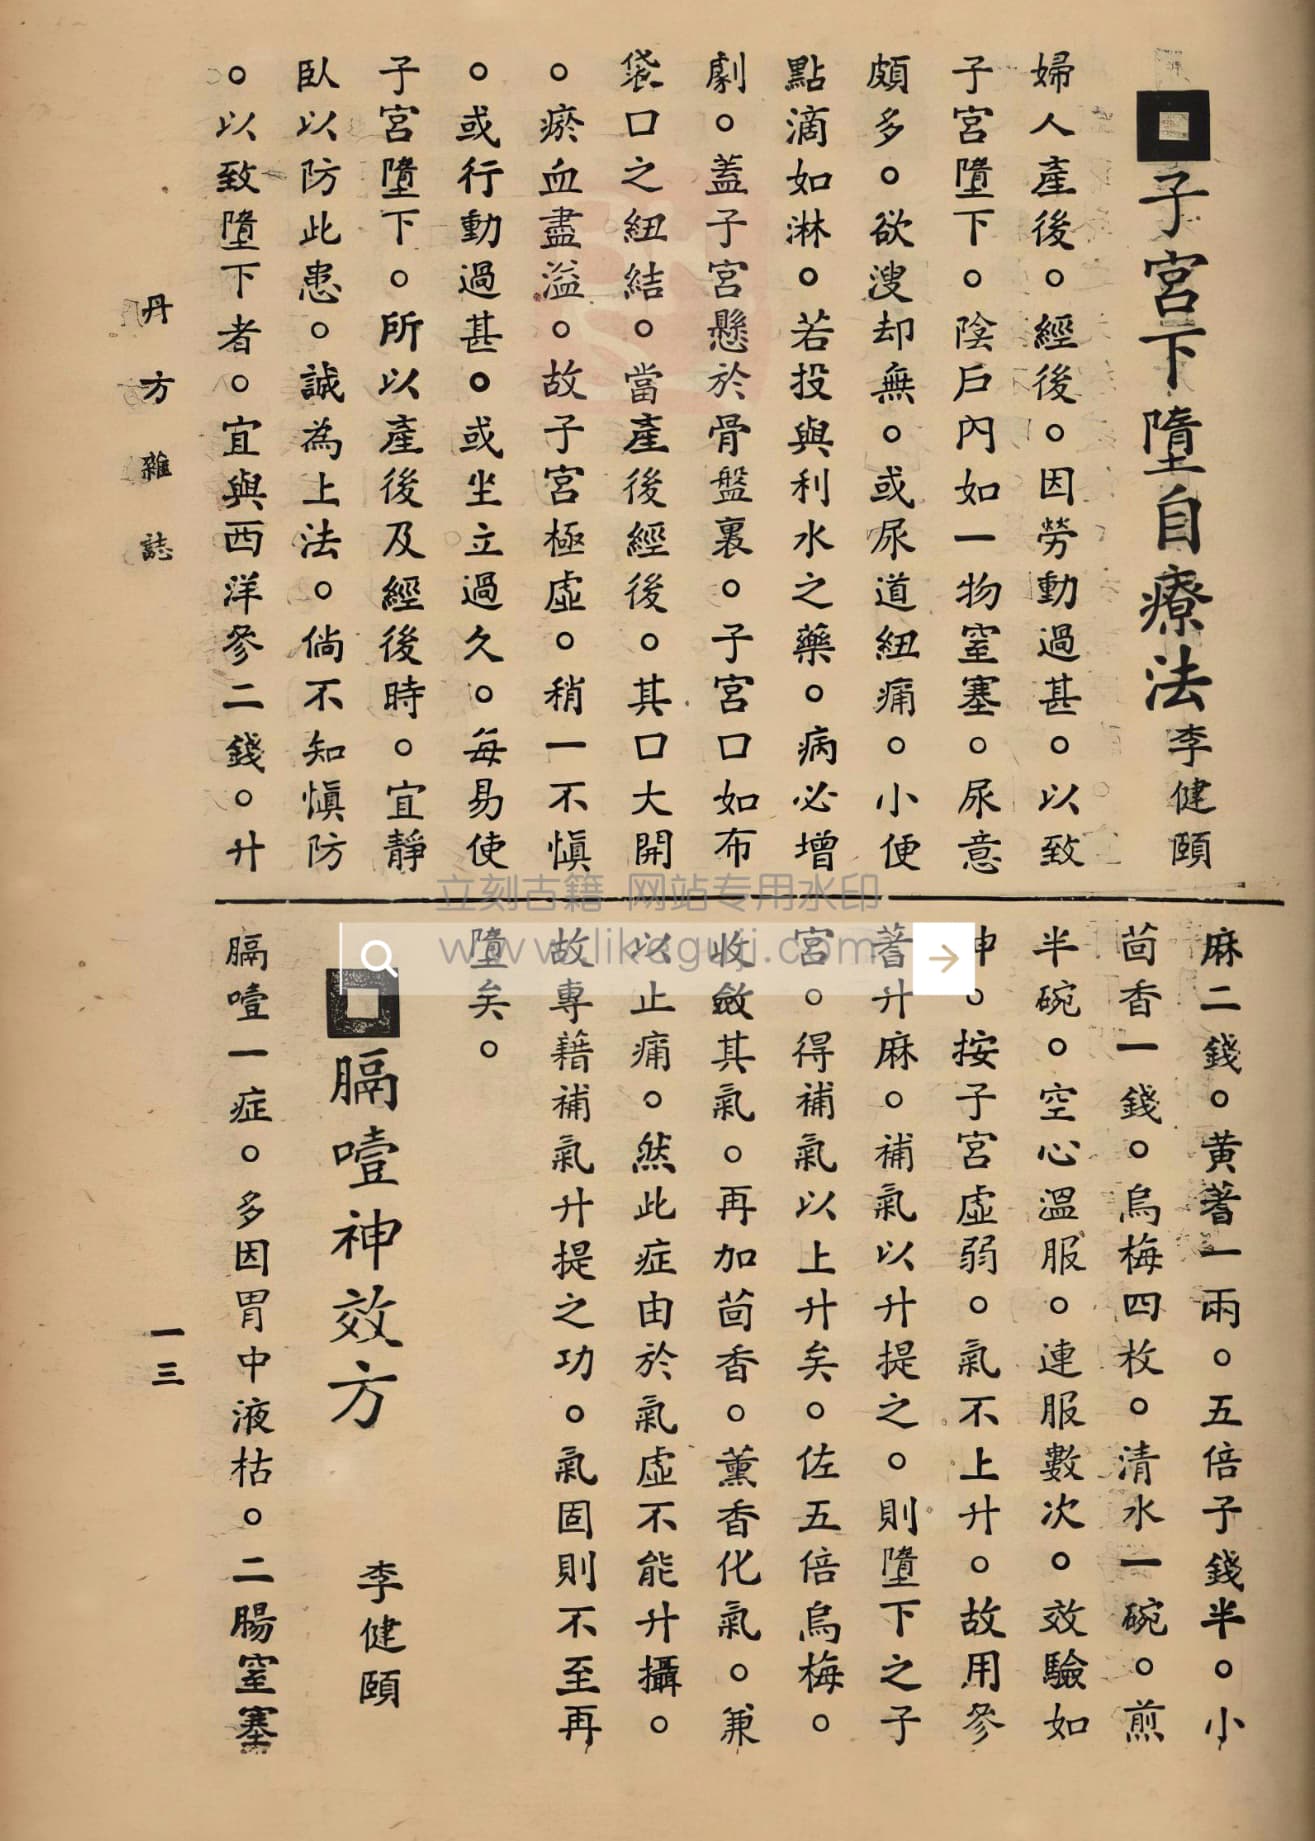 子宮下墮自療法 李健頤
婦人產後。經後。因勞動過甚。以致
子宮墮下。陰戶內如一物窒塞。尿意
頗多。欲溲却無。或尿道紐痛。小便
點滴如淋。若投與利水之藥。病必增
劇。蓋子宮懸於骨盤裏。子宮口如布
袋口之紐結。當產後經後。其口大開
。瘀血盡溢。故子宮極虛。稍一不慎
。或行動過甚。或坐立過久。每易使
子宮墮下。所以產後及經後時。宜靜
臥以防此患。誠為上法。倘不知慎防
。以致墮下者。宜與西洋參二錢。升
麻二錢。黃蓍一兩。五倍子錢半。小
茴香一錢。烏梅四枚。清水一碗。煎
半碗。空心溫服。連服數次。效驗如
神。按子宮虛弱。氣不上升。故用參
蓍升麻。補氣以升提之。則墮下之子
宮。得補氣以上升矣。佐五倍烏梅。
收斂其氣。再加茴香。薰香化氣。兼
以止痛。然此症由於氣虛不能升攝。
故專藉補氣升提之功。氣固則不至再
墮矣。
膈噎神效方 李健頤
膈噎一症。多因胃中液枯。二腸窒塞
丹方雜誌
一三
立刻古籍 网站专用水印
www.likeguji.com